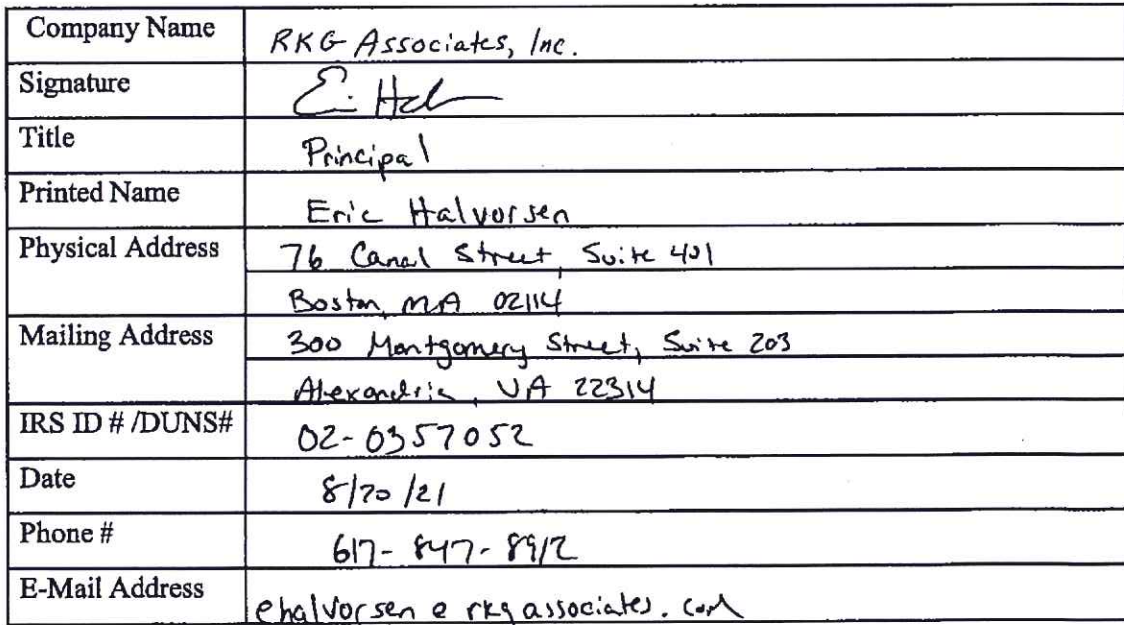 Company Name RKG Associates, Inc.
Signature
Title Principal
Printed Name Eric Halvorsen
Physical Address 76 Canal Street, Suite 401
Boston, MA 02114
Mailing Address 300 Montgomery Street, Suite 203
Alexandria, VA 22314
IRS ID # /DUNS# 02-0357052
Date 8/20/21
Phone # 617-847-8912
E-Mail Address ehalvorsen@rkgassociates.com